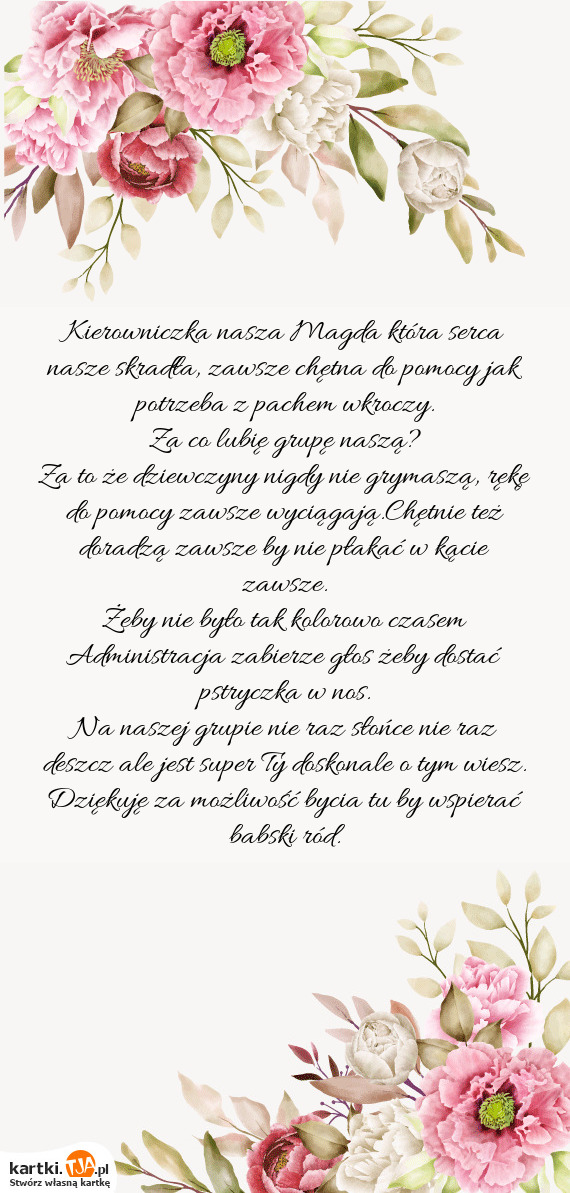 Kierowniczka nasza Magda która serca
nasze skradła, zawsze chętna do pomocy jak
potrzeba z pachem wkroczy.
Za co lubię grupę naszą?
Za to że dziewczyny nigdy nie grymaszą, rękę
do pomocy zawsze wyciągają.Chętnie też
doradzą zawsze by nie płakać w kącie
zawsze.
Żeby nie było tak kolorowo czasem
Administracja zabierze głos żeby dostać
pstryczka w nos.
Na naszej grupie nie raz słońce nie raz
deszcz ale jest super Ty doskonale o tym wiesz.
Dziękuję za możliwość bycia tu by wspierać
babski ród.
kartki.TJA.pl
Stwórz własną kartkę